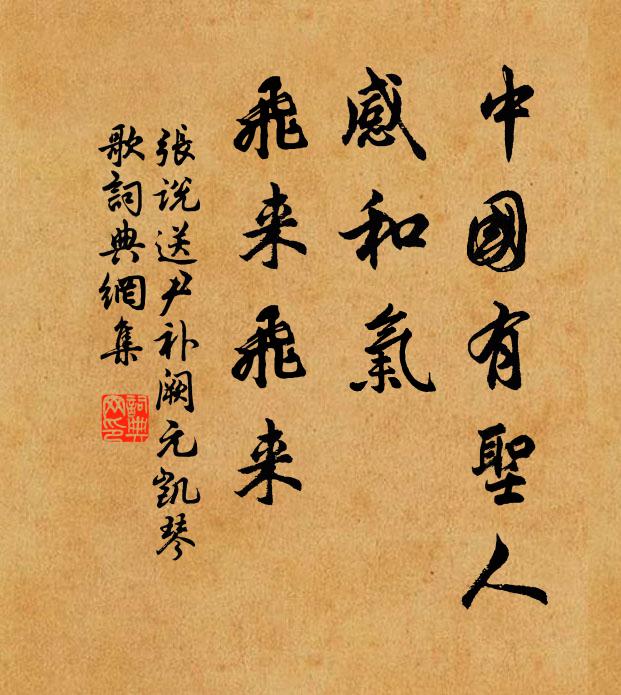 中國有聖人
感和氣
飛来飛来
張说送尹补阙元凱琴
歌詞典網集
詞典
网印